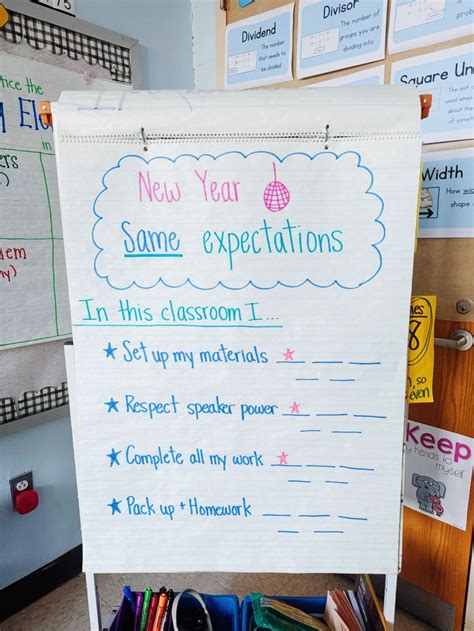 New Year
Same expectations
In this classroom I...
Set up my materials
Respect speaker power
Complete all my work
Pack up + Homework
Dividend
The number that needs to be divided
Divisor
The number of groups you are dividing into
Square Un
Width
How wid
shape
Keep
my hands to
myself
8
so
even
otice the
El
in
ers
dem
ny)